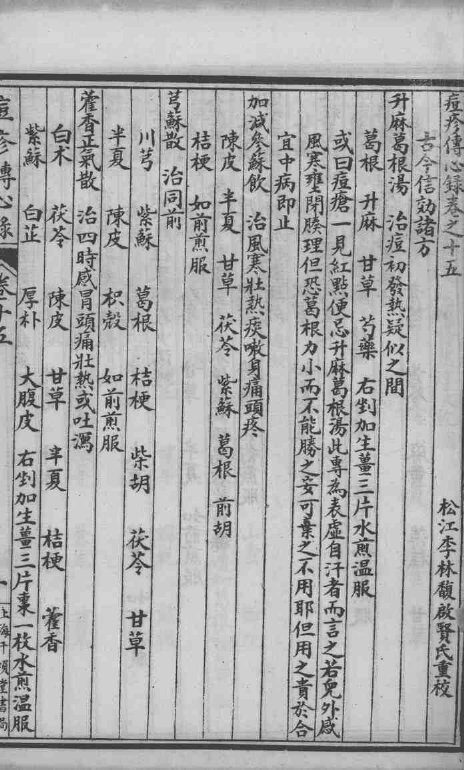 痘疹傳心錄卷之十五
松江李林馥啟賢氏重校
古今信効諸方
升麻葛根湯　治痘初發熱疑似之間
葛根　升麻　甘草　芍藥　右剉加生薑三片水煎温服
或曰痘瘡一見紅點便忌升麻葛根湯此專為表虛自汗者而言之若兒外感
風寒壅閉腠理但恐葛根力小而不能勝之安可棄之不用耶但用之貴於合
宜中病即止
加減參蘇飲　治風寒壯熱痰嗽身痛頭疼
陳皮　半夏　甘草　茯苓　紫蘇　葛根　前胡
桔梗　如前煎服
芎蘇散　治同前
川芎　紫蘇　葛根　桔梗　柴胡　茯苓　甘草
半夏　陳皮　枳殼　如前煎服
藿香正氣散　治四時感冒頭痛壯熱或吐瀉
白朮　茯苓　陳皮　甘草　半夏　桔梗　藿香
紫蘇　白芷　厚朴　大腹皮　右剉加生薑三片棗一枚水煎温服
痘疹傳心錄　卷十五　一　上海千頃堂書局